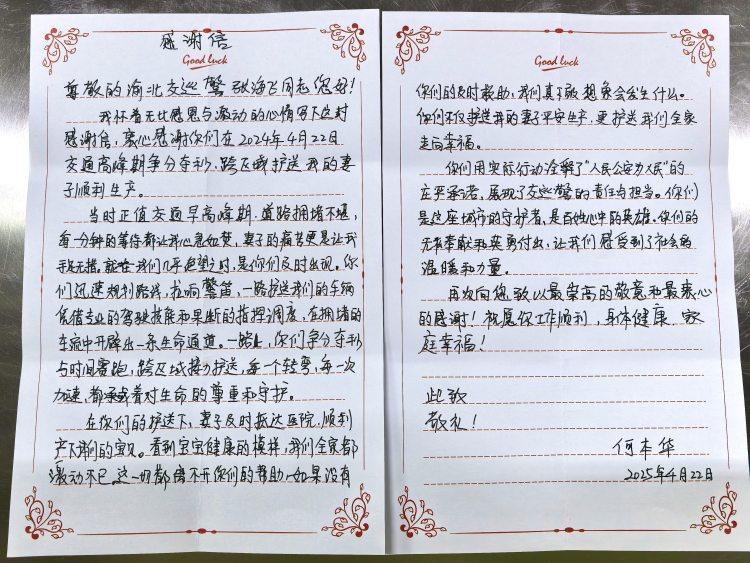 感谢信
Good luck
尊敬的渝北交巡警张海飞同志您好！
我怀着无比感恩与激动的心情写下这封
感谢信，衷心感谢你们在2024年4月22日
交通高峰期争分夺秒、跨区域护送我的妻
子顺利生产。
当时正值交通早高峰期，道路拥堵不堪，
每一分钟的等待都让我心急如焚，妻子的痛苦更是让我
手足无措，就在我们几乎绝望之时，是你们及时出现。你
们迅速规划路线，拉响警笛，一路护送我们的车辆
凭借专业的驾驶技能和果断的指挥调度，在拥堵的
车流中开辟出一条生命通道。一路上，你们争分夺秒
与时间赛跑，跨区域接力护送，每一个转弯，每一次
加速，都承载着对生命的尊重和守护。
在你们的护送下，妻子及时抵达医院，顺利
产下我们的宝贝。看到宝宝健康的模样，我们全家都
激动不已。这一切都离不开你们的帮助，如果没有
Good luck
你们的及时救助，我们真不敢想象会发生什么。
你们不仅护送我的妻子平安生产，更护送我们全家
走向幸福。
你们用实际行动诠释了“人民公安为人民”的
庄严承诺，展现了交巡警的责任与担当。你们
是这座城市的守护者，是百姓心中的英雄，你们的
无私奉献和英勇付出，让我们感受到了社会的
温暖和力量。
再次向您致以最崇高的敬意和最衷心
的感谢！祝愿你工作顺利，身体健康，家
庭幸福！
此致
敬礼！
何本华
2025年4月22日